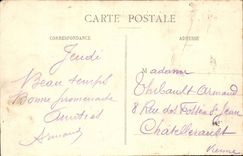 CARTE POSTALE
CORRESPONDANCE
ADRESSE
Jeudi
Beau temps
Bonne promenade
Amitiés
Armand
Madame
Thibault Armand
8 Rue des Fossés St Jean
Châtellerault
Vienne